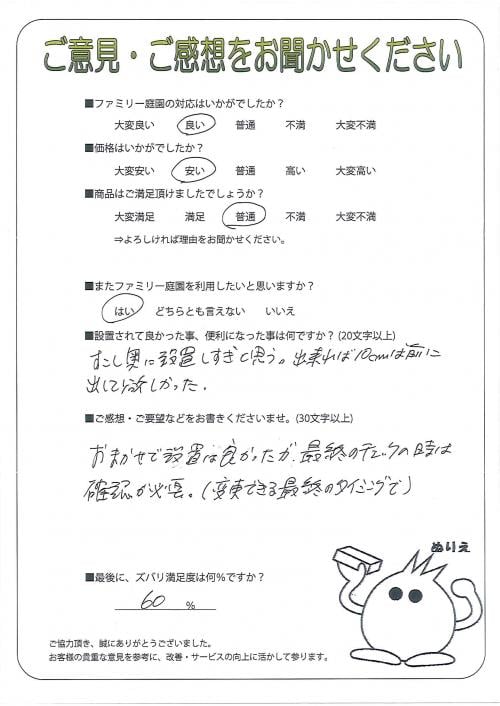 ご意見・ご感想をお聞かせください
■ファミリー庭園の対応はいかがでしたか？
大変良い 良い 普通 不満 大変不満
■価格はいかがでしたか？
大変安い 安い 普通 高い 大変高い
■商品はご満足頂けましたでしょうか？
大変満足 満足 普通 不満 大変不満
⇒よろしければ理由をお聞かせください。
■またファミリー庭園を利用したいと思いますか？
はい どちらとも言えない いいえ
■設置されて良かった事、便利になった事は何ですか？(20文字以上)
すこし奥に設置しすぎと思う。出来れば10cmは前に
出して欲しかった.
■ご感想・ご要望などをお書きくださいませ。(30文字以上)
おまかせで設置は良かったが、最終のチェックの時は
確認が必要。(変更できる最終のタイミングで)
ぬりえ
■最後に、ズバリ満足度は何％ですか？
60 ％
ご協力頂き、誠にありがとうございました。
お客様の貴重な意見を参考に、改善・サービスの向上に活かして参ります。